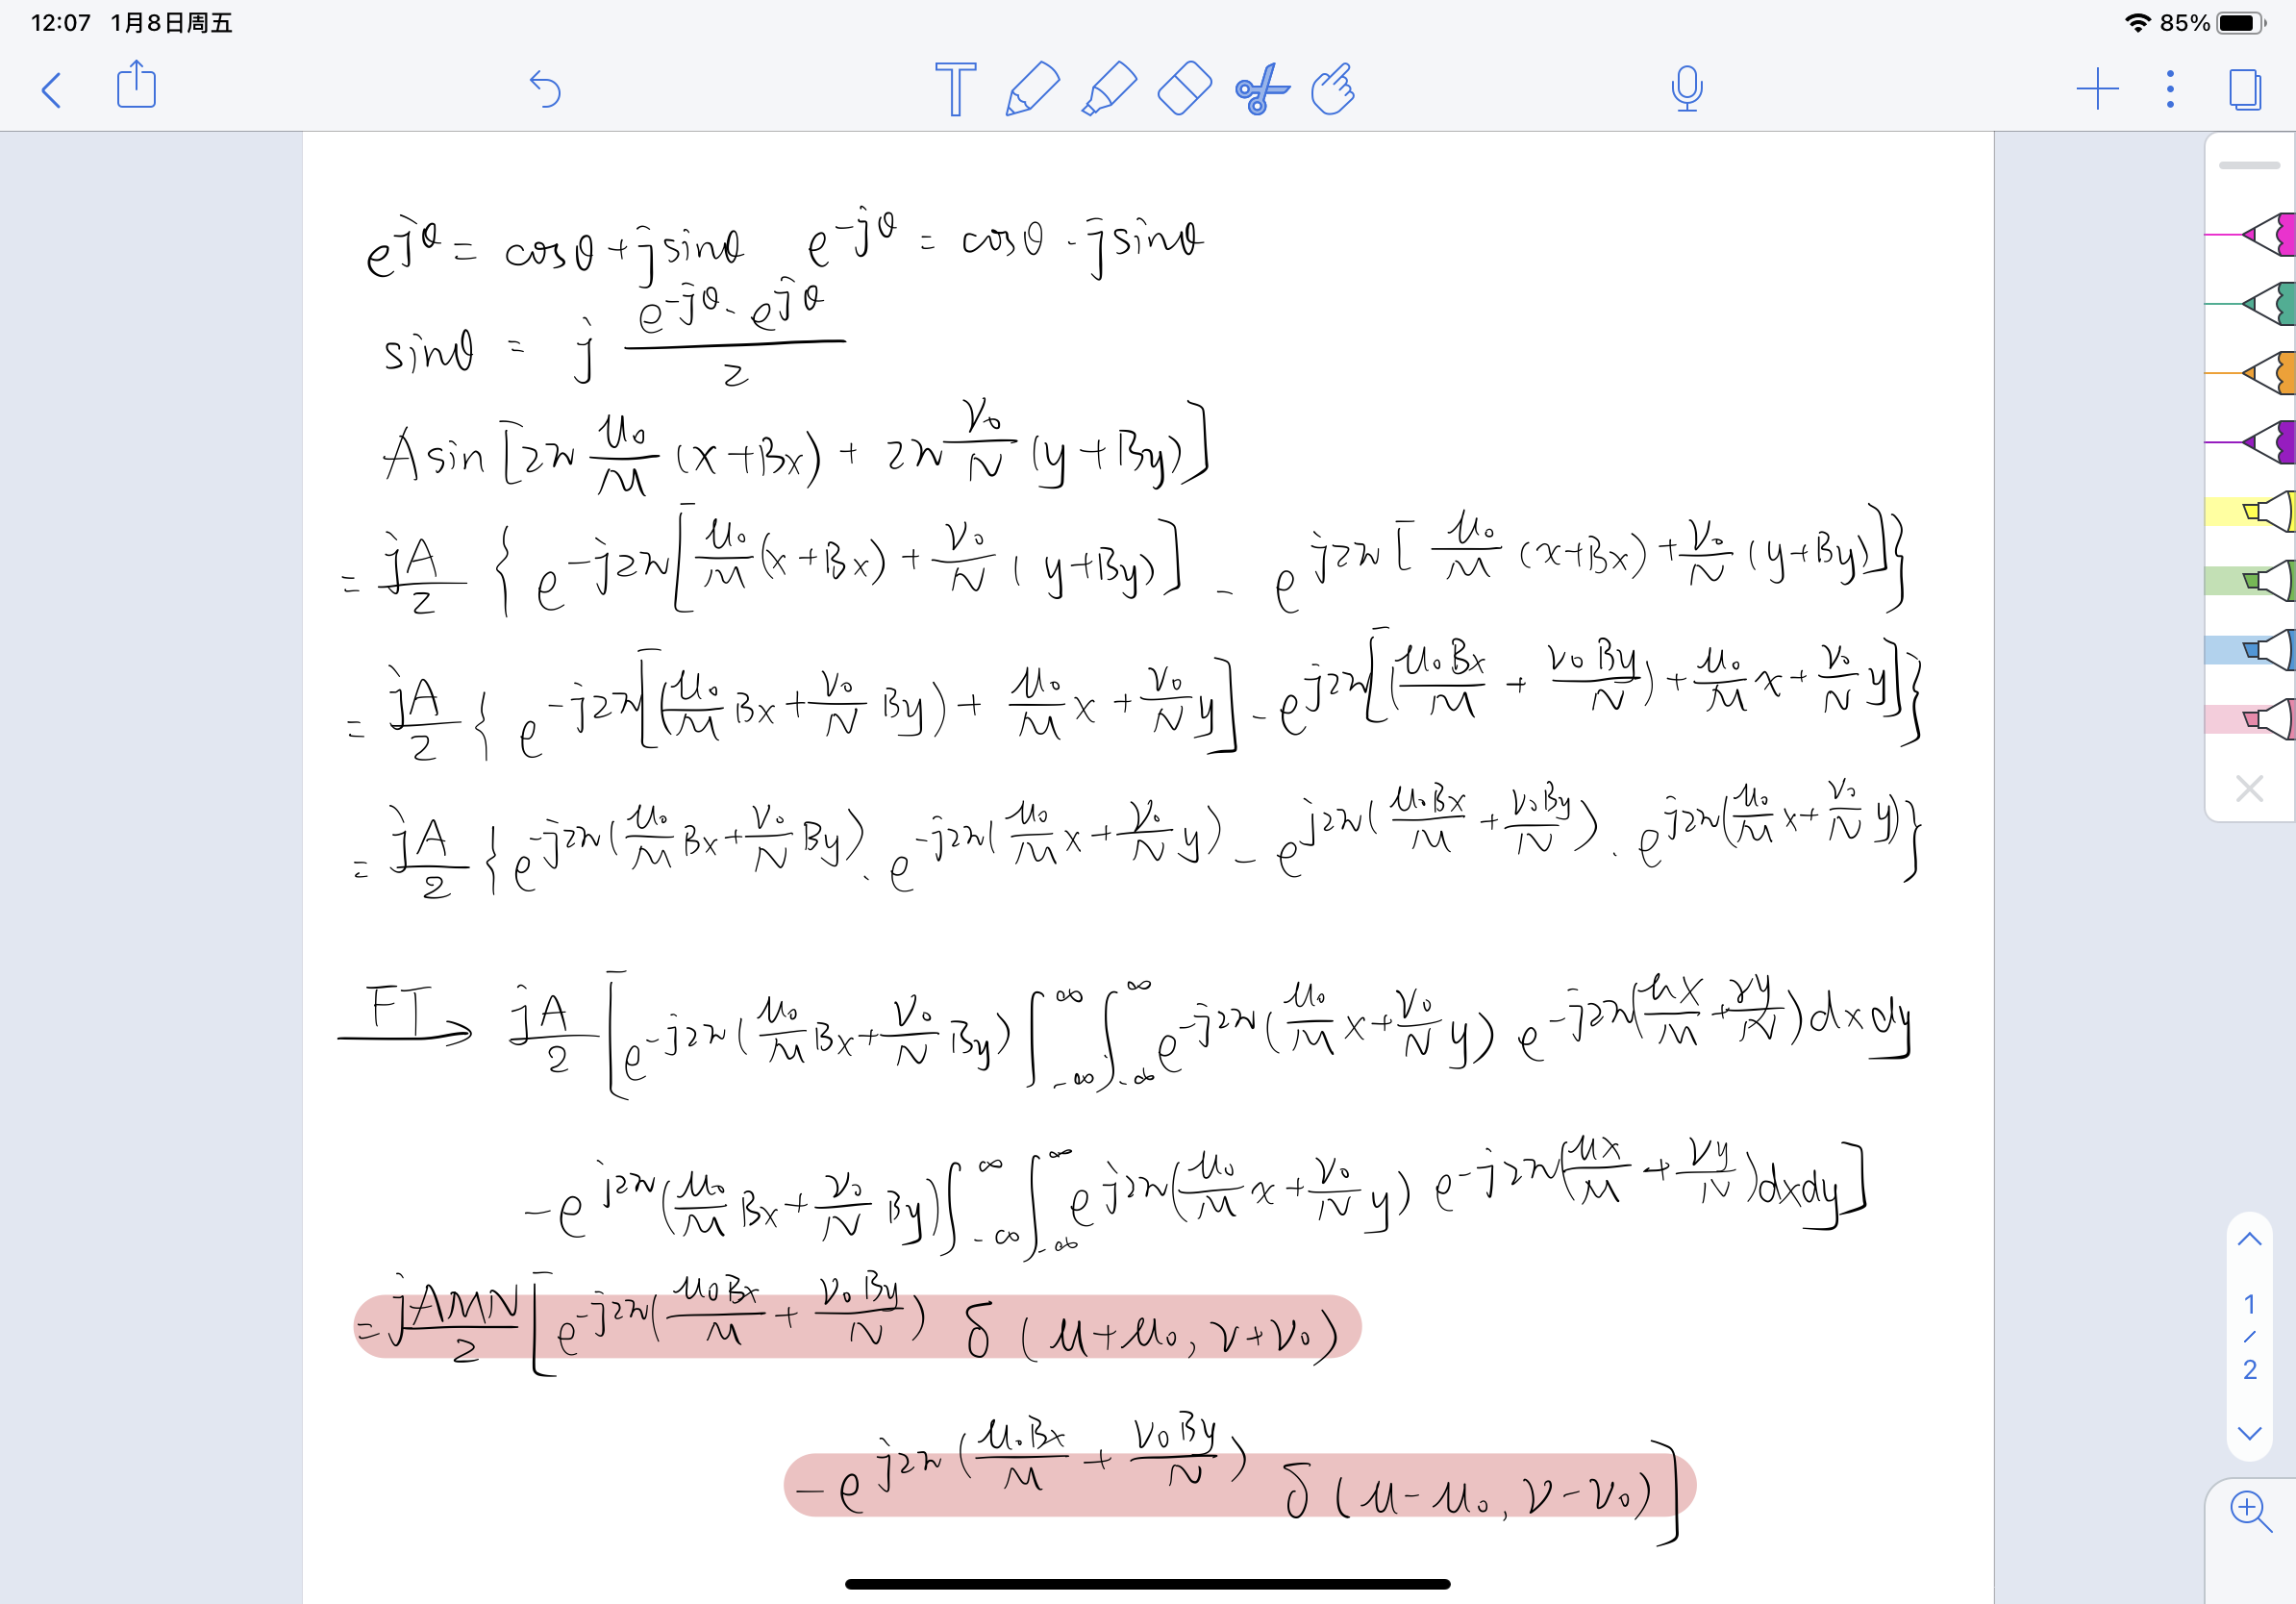 12:07 1月8日周五 85%
e^{jθ} = cosθ + jsinθ e^{-jθ} = cosθ - jsinθ
sinθ = j \frac{e^{-jθ} - e^{jθ}}{2}
A sin [2π \frac{μ₀}{M} (x+Bx) + 2π \frac{ν₀}{N} (y+By)]
= \frac{jA}{2} { e^{-j2π[\frac{μ₀}{M}(x+Bx) + \frac{ν₀}{N}(y+By)]} - e^{j2π[\frac{μ₀}{M}(x+Bx) + \frac{ν₀}{N}(y+By)]} }
= \frac{jA}{2} { e^{-j2π[(\frac{μ₀}{M}Bx + \frac{ν₀}{N}By) + \frac{μ₀}{M}x + \frac{ν₀}{N}y]} - e^{j2π[(\frac{μ₀Bx}{M} + \frac{ν₀By}{N}) + \frac{μ₀}{M}x + \frac{ν₀}{N}y]} }
= \frac{jA}{2} { e^{-j2π(\frac{μ₀}{M}Bx + \frac{ν₀}{N}By)} · e^{-j2π(\frac{μ₀}{M}x + \frac{ν₀}{N}y)} - e^{j2π(\frac{μ₀Bx}{M} + \frac{ν₀By}{N})} · e^{j2π(\frac{μ₀}{M}x + \frac{ν₀}{N}y)} }
FT → \frac{jA}{2} [ e^{-j2π(\frac{μ₀}{M}Bx + \frac{ν₀}{N}By)} ∫_{-∞}^{∞} ∫_{-∞}^{∞} e^{-j2π(\frac{μ₀}{M}x + \frac{ν₀}{N}y)} e^{-j2π(\frac{μx}{M} + \frac{νy}{N})} dxdy
- e^{j2π(\frac{μ₀}{M}Bx + \frac{ν₀}{N}By)} ∫_{-∞}^{∞} ∫_{-∞}^{∞} e^{j2π(\frac{μ₀}{M}x + \frac{ν₀}{N}y)} e^{-j2π(\frac{μx}{M} + \frac{νy}{N})} dxdy ]
= \frac{jAMN}{2} [ e^{-j2π(\frac{μ₀Bx}{M} + \frac{ν₀By}{N})} δ(μ+μ₀, ν+ν₀)
- e^{j2π(\frac{μ₀Bx}{M} + \frac{ν₀By}{N})} δ(μ-μ₀, ν-ν₀) ]
1
/
2